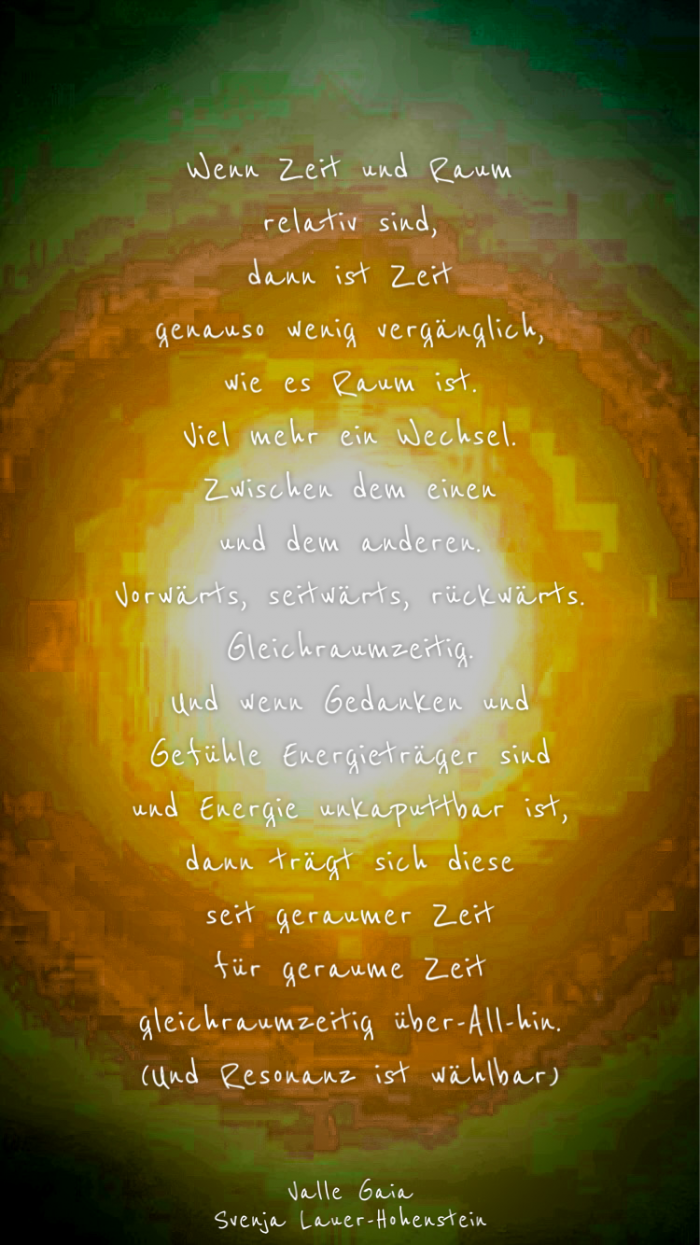 Wenn Zeit und Raum
relativ sind,
dann ist Zeit
genauso wenig vergänglich,
wie es Raum ist.
Viel mehr ein Wechsel.
Zwischen dem einen
und dem anderen.
Vorwärts, seitwärts, rückwärts.
Gleichraumzeitig.
Und wenn Gedanken und
Gefühle Energieträger sind
und Energie unkaputtbar ist,
dann trägt sich diese
seit geraumer Zeit
für geraume Zeit
gleichraumzeitig über-All-hin.
(Und Resonanz ist wählbar)
Valle Gaia
Svenja Lauer-Hohenstein